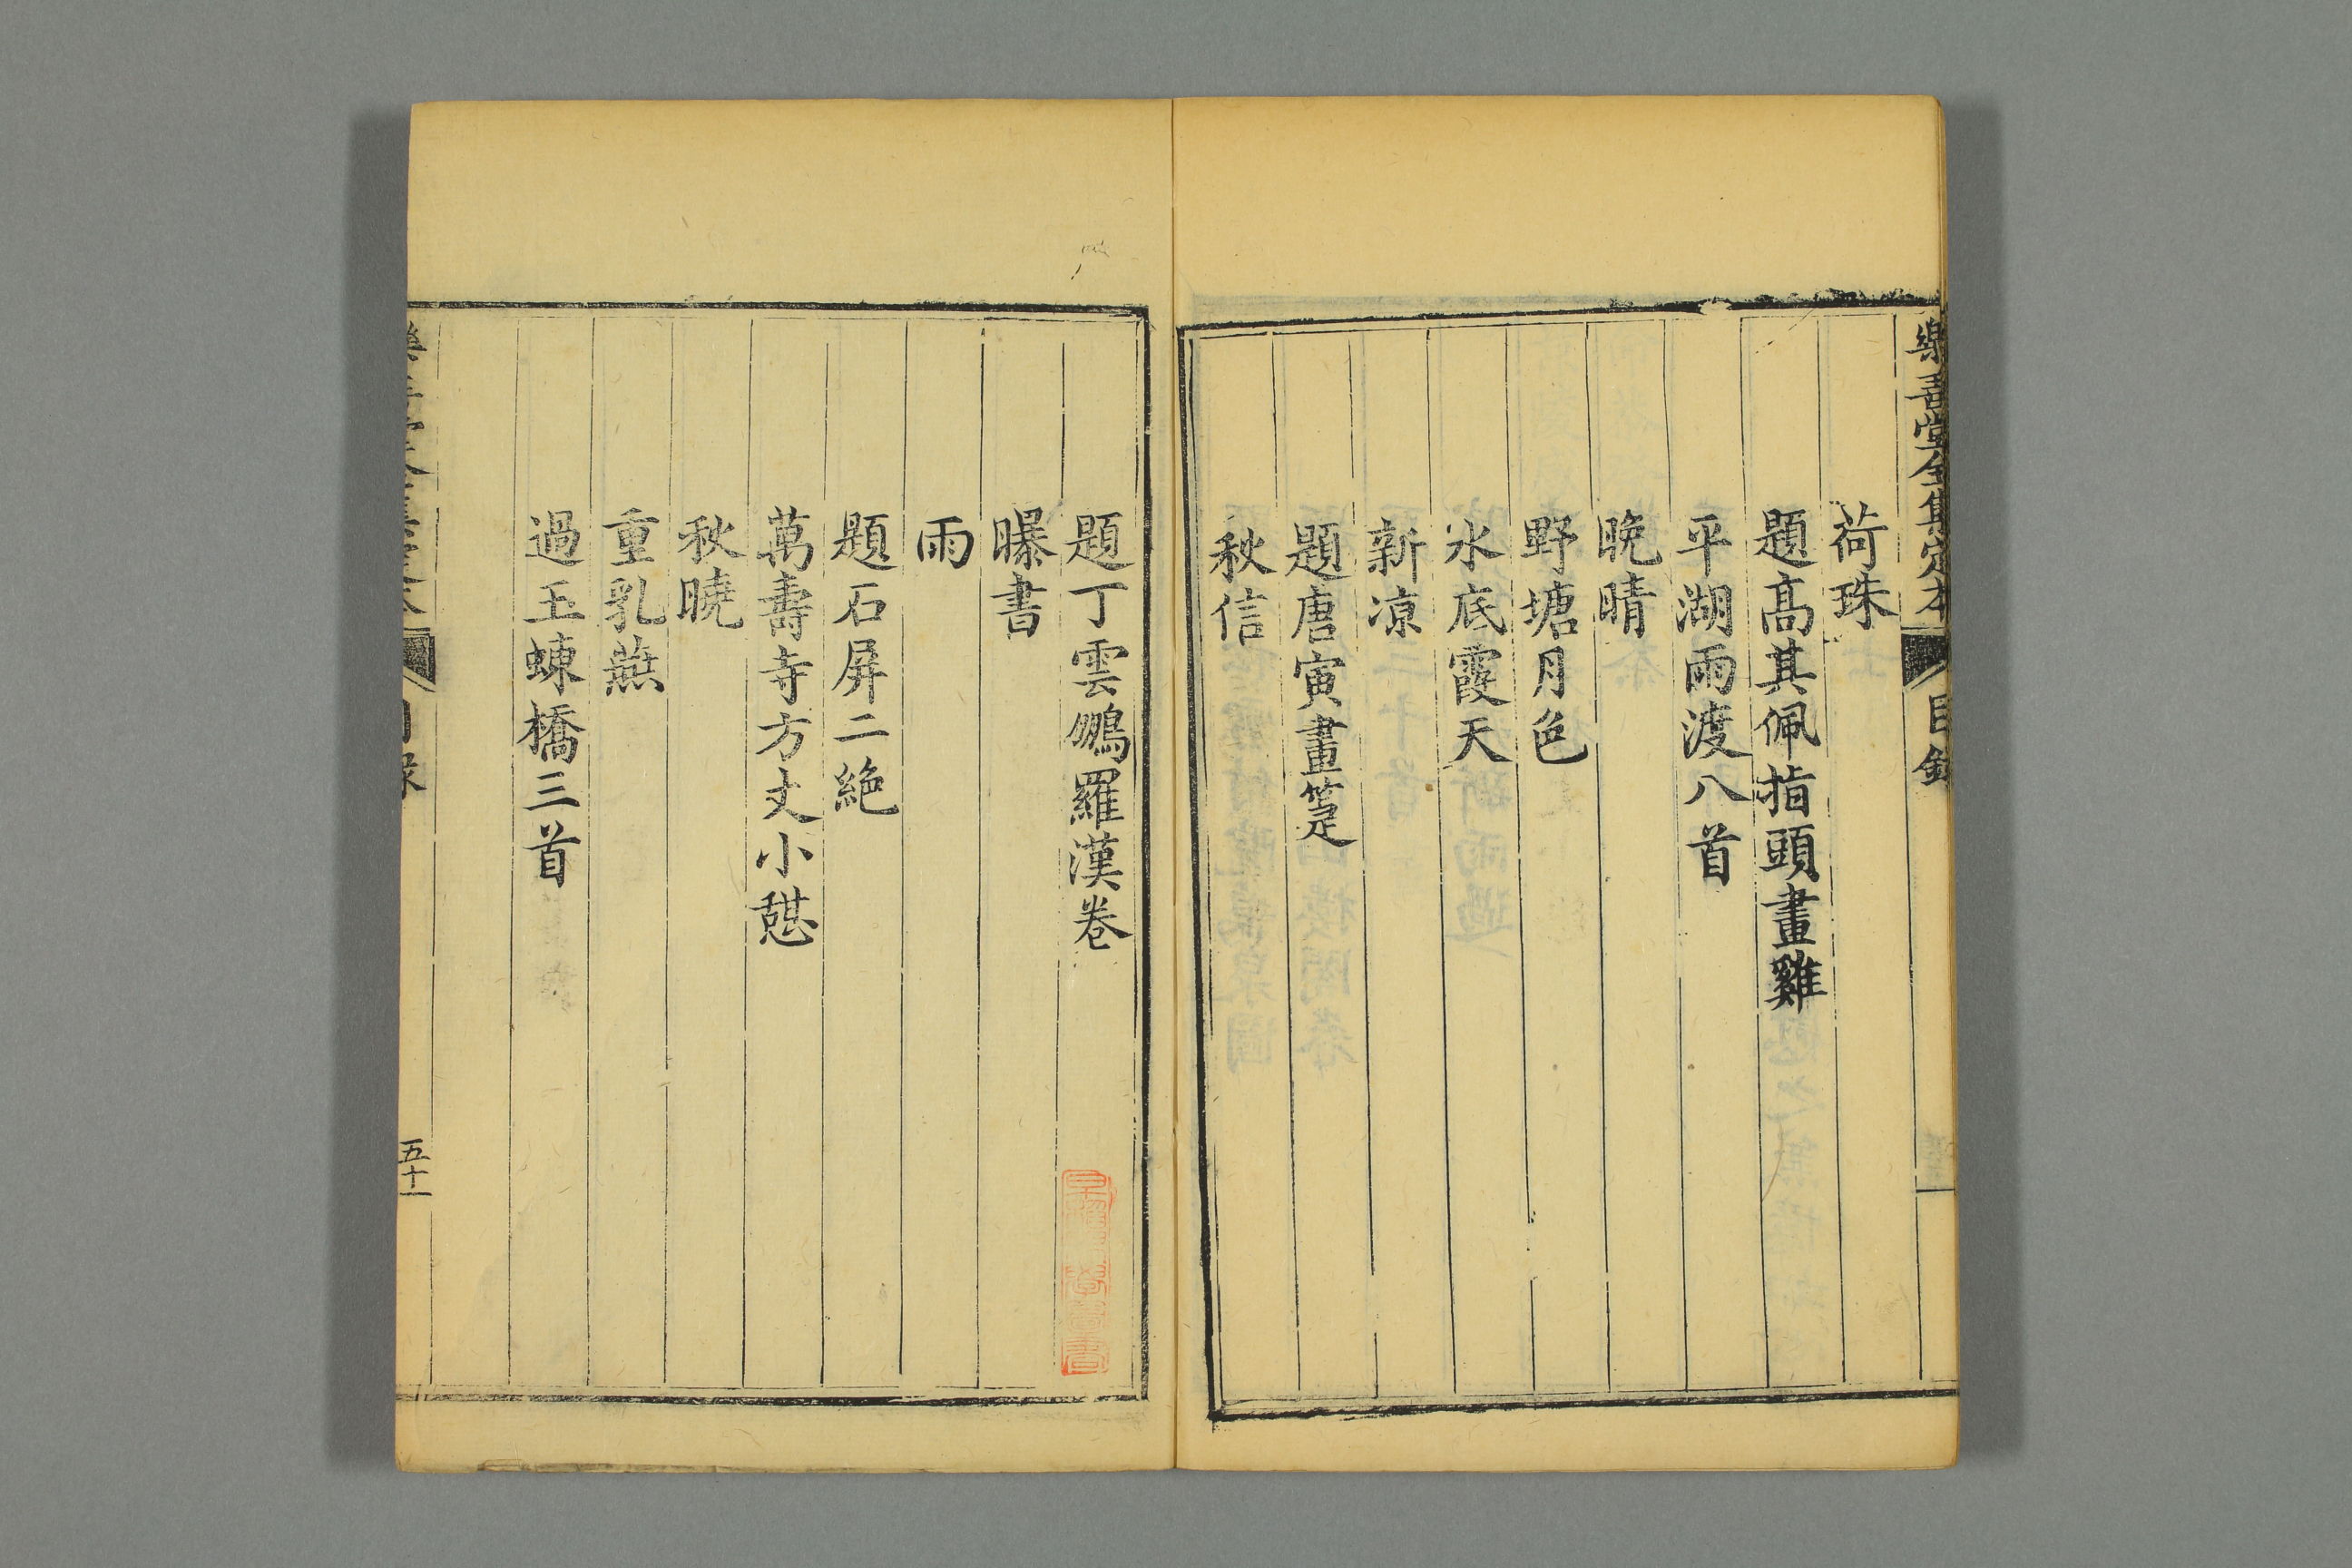 樂善堂全集定本
目錄
荷珠
題高其佩指頭畫雞
平湖雨渡八首
晚晴
野塘月色
水底霞天
新凉
題唐寅畫箑
秋信
題丁雲鵬羅漢卷
曝書
雨
題石屏二絶
萬壽寺方丈小憩
秋曉
重乳燕
過玉蝀橋三首
五十一